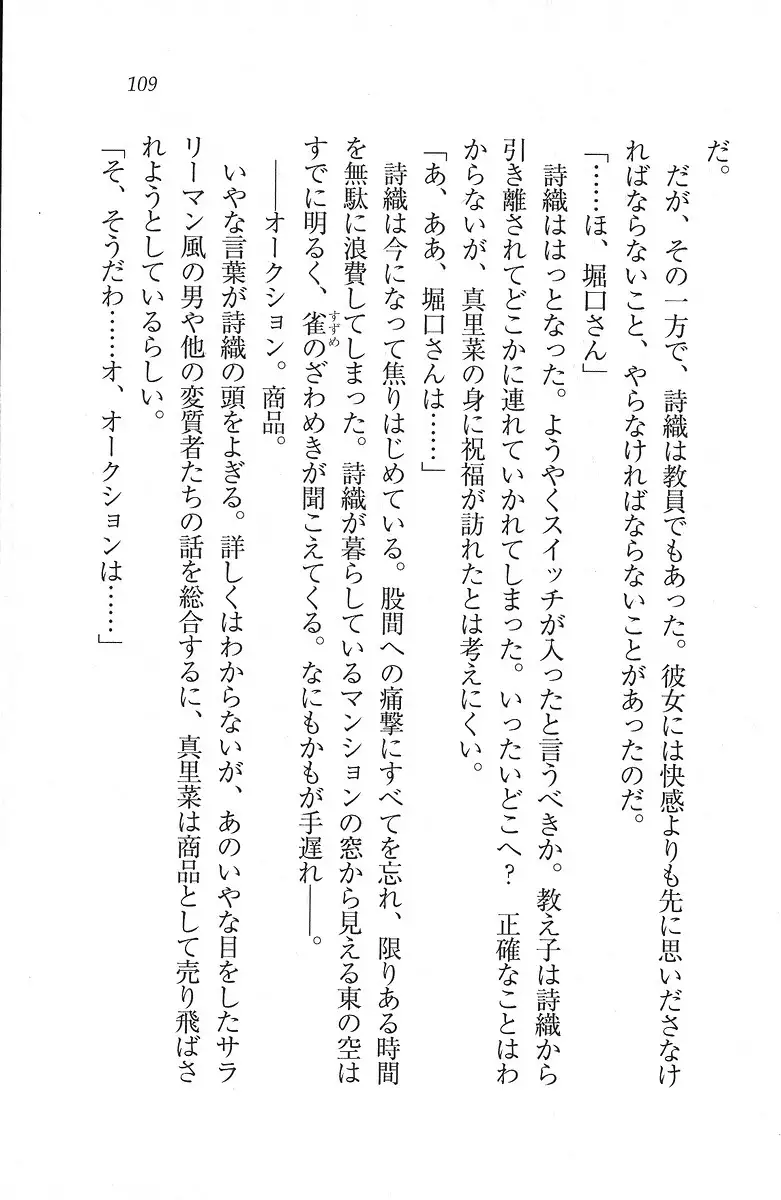 109
だ。
だが、その一方で、詩織は教員でもあった。彼女には快感よりも先に思いださなけ
ればならないこと、やらなければならないことがあったのだ。
「……ほ、堀口さん」
詩織ははっとなった。ようやくスイッチが入ったと言うべきか。教え子は詩織から
引き離されてどこかに連れていかれてしまった。いったいどこへ？　正確なことはわ
からないが、真里菜の身に祝福が訪れたとは考えにくい。
「あ、ああ、堀口さんは……」
詩織は今になって焦りはじめている。股間への痛撃にすべてを忘れ、限りある時間
を無駄に浪費してしまった。詩織が暮らしているマンションの窓から見える東の空は
すでに明るく、雀のざわめきが聞こえてくる。なにもかもが手遅れ――。
すずめ
――オークション。商品。
いやな言葉が詩織の頭をよぎる。詳しくはわからないが、あのいやな目をしたサラ
リーマン風の男や他の変質者たちの話を総合するに、真里菜は商品として売り飛ばさ
れようとしているらしい。
「そ、そうだわ……オ、オークションは……」